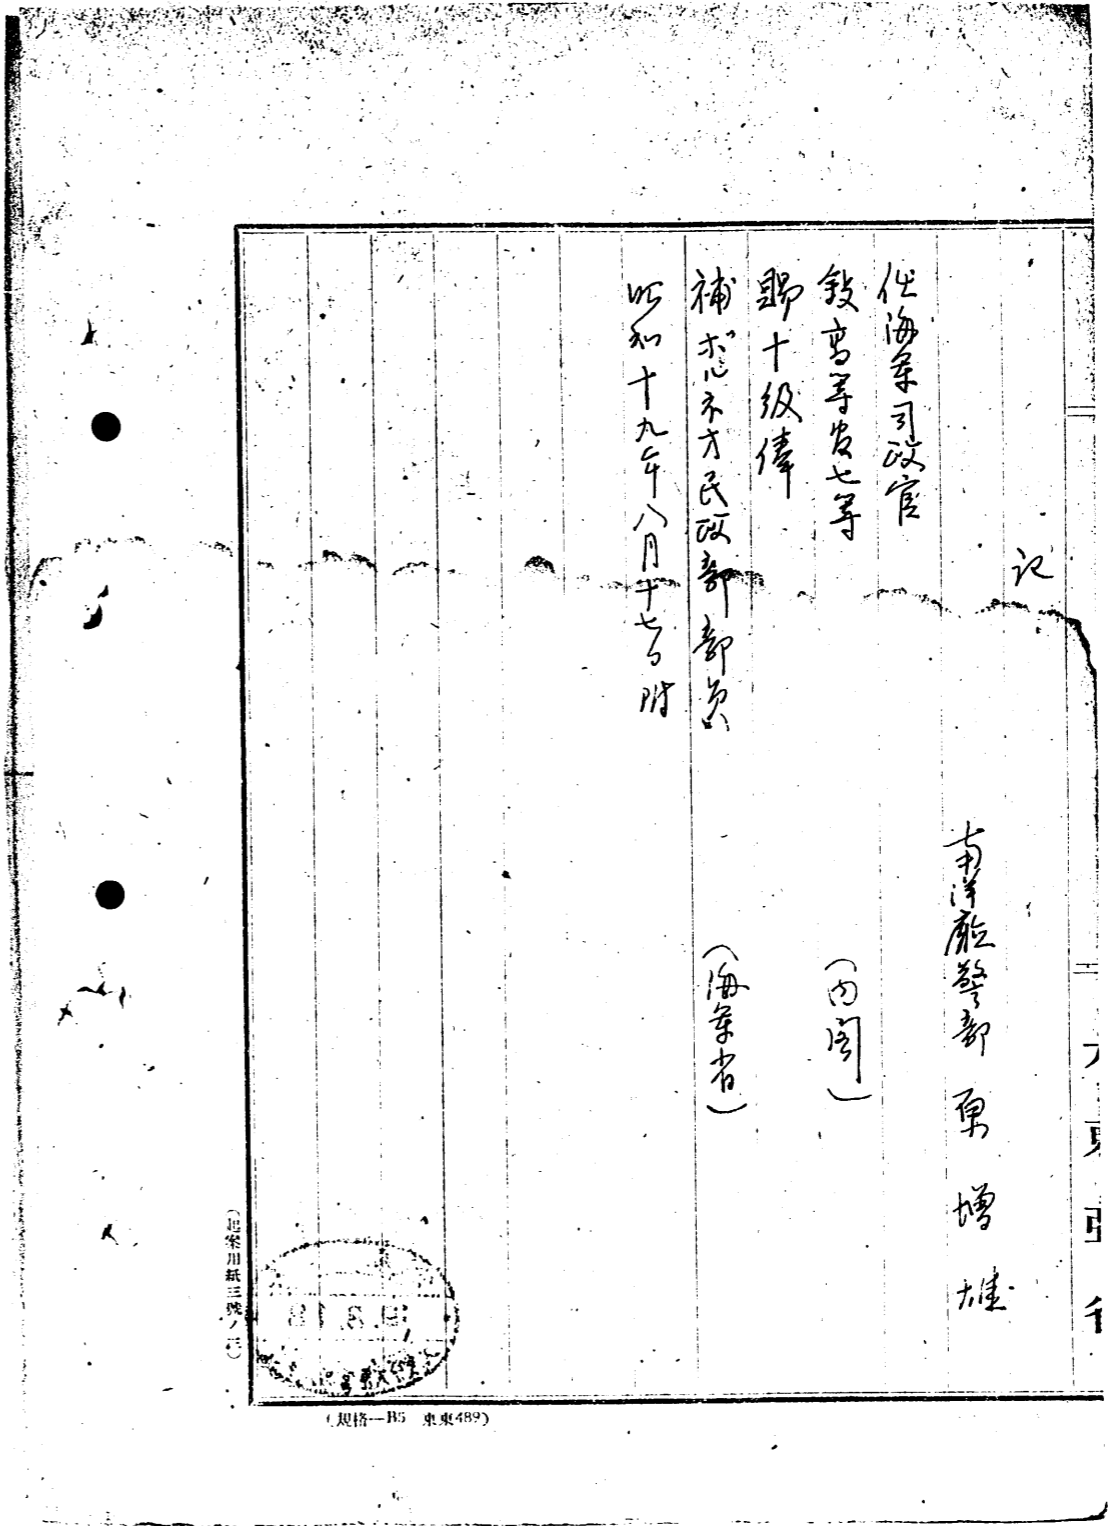 記
南洋廳警部 原 増雄
任海軍司政官
敍高等官七等
(内閣)
賜十級俸
補ボルネオ民政部部員
(海軍省)
昭和十九年八月十七日附
大東亞省
(起案用紙三號ノ二)
(規格—B5 東東489)